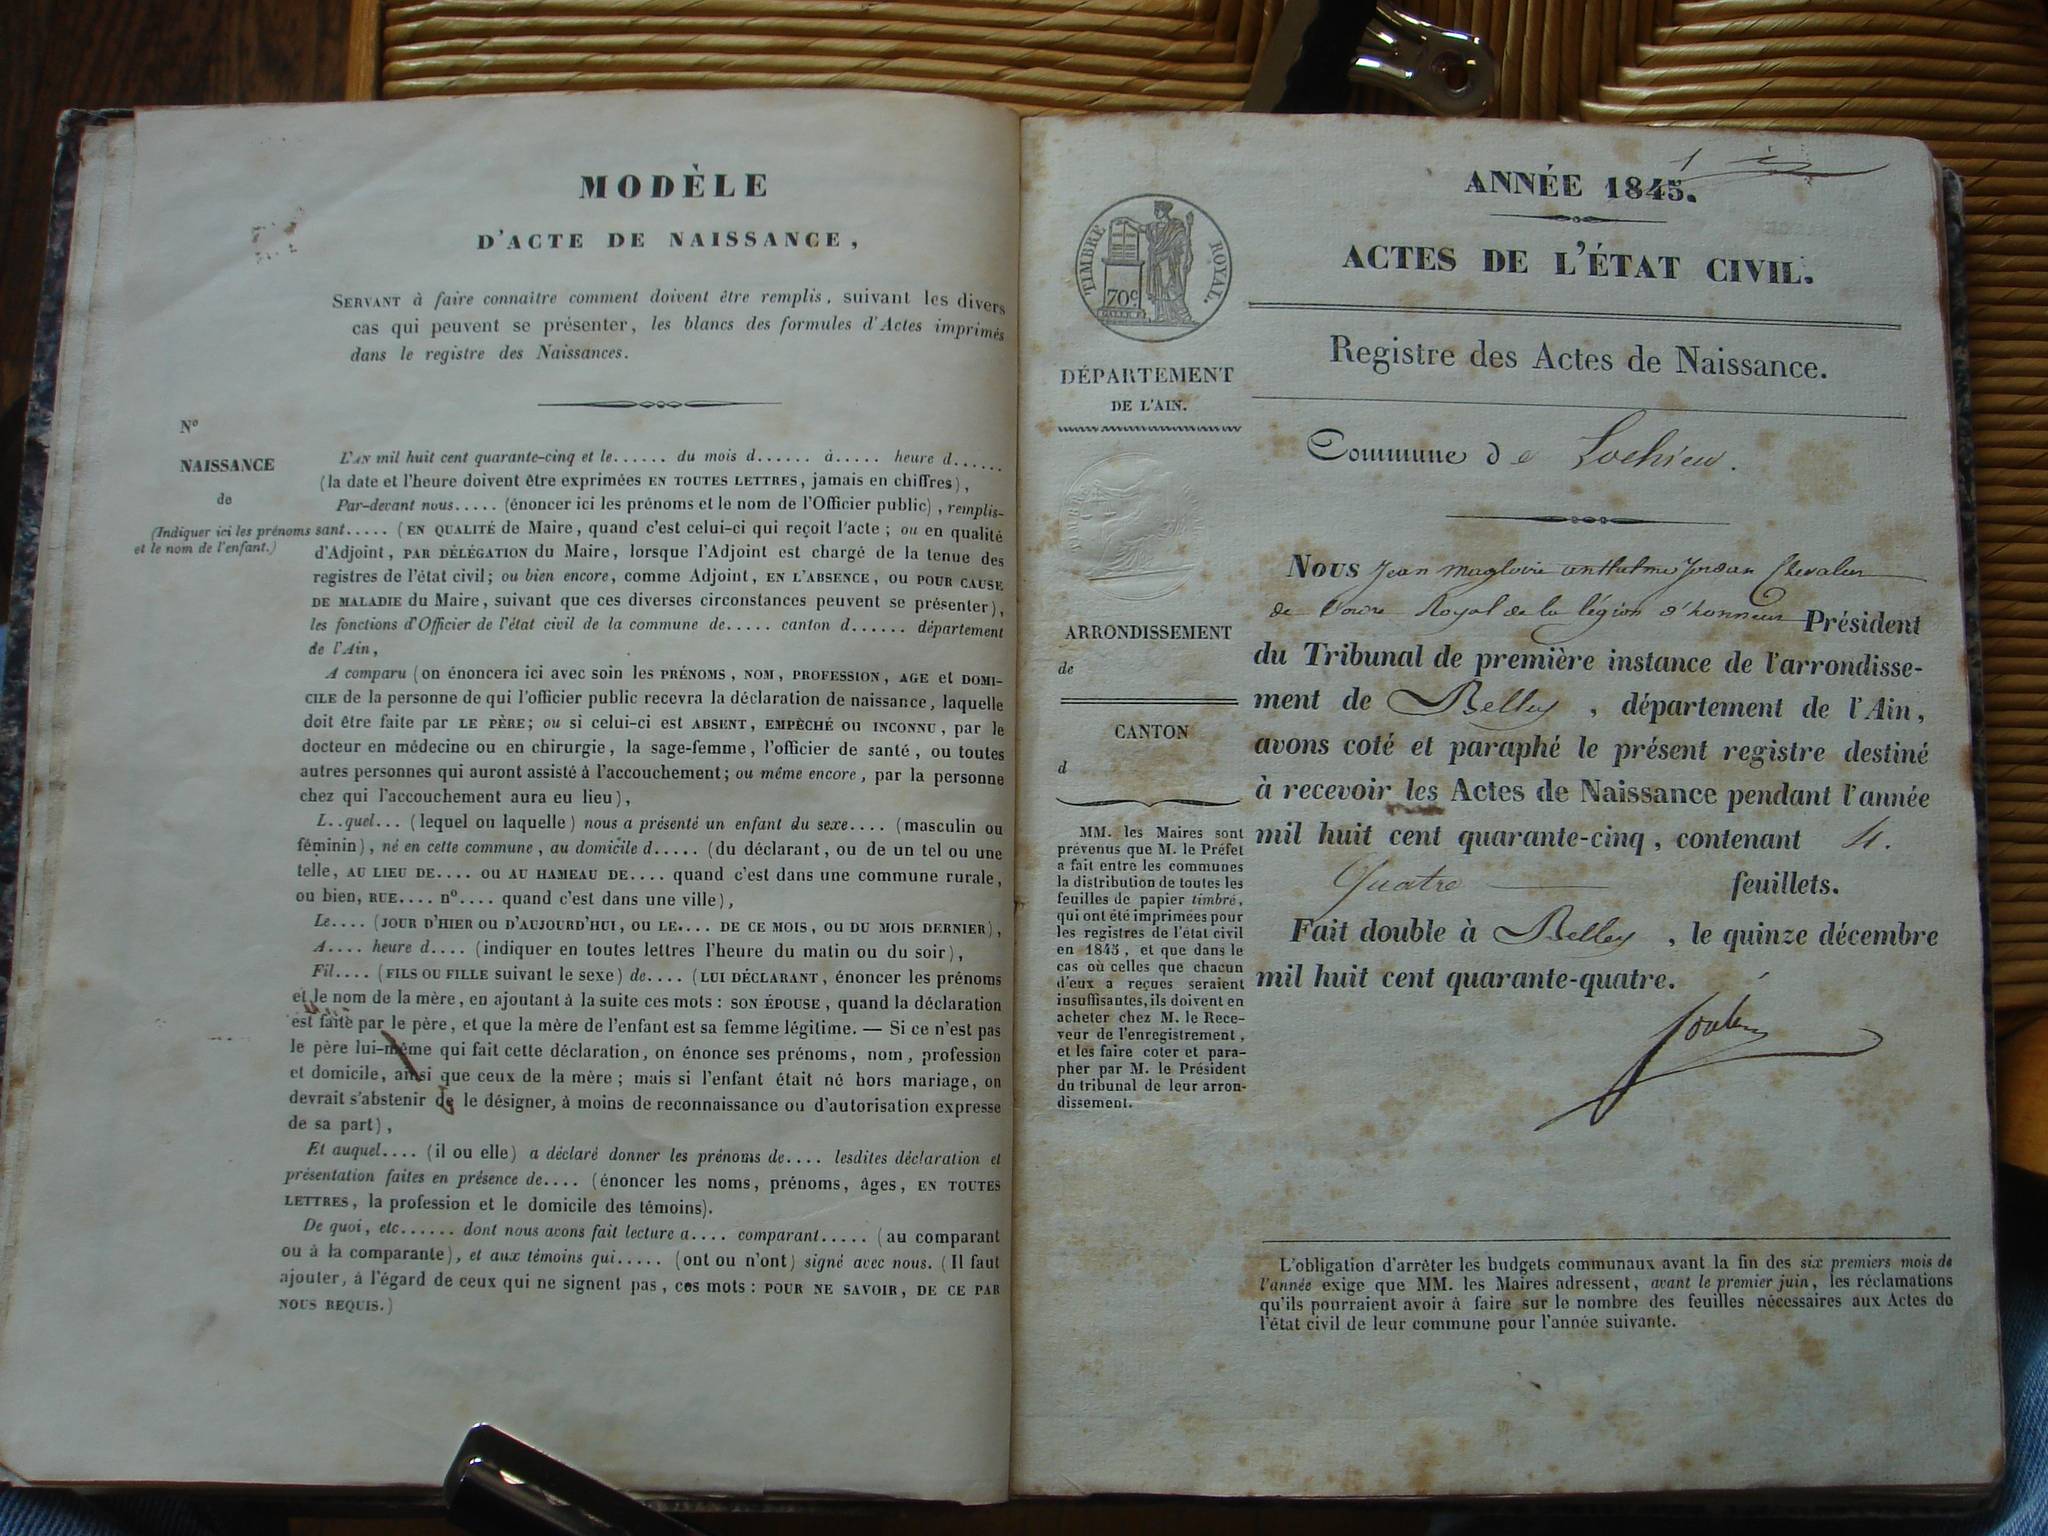 MODÈLE
D'ACTE DE NAISSANCE,
SERVANT à faire connaître comment doivent être remplis, suivant les divers
cas qui peuvent se présenter, les blancs des formules d'Actes imprimés
dans le registre des Naissances.
No
NAISSANCE
de
(Indiquer ici les prénoms
et le nom de l'enfant.)
L'AN mil huit cent quarante-cinq et le...... du mois d...... à..... heure d......
(la date et l'heure doivent être exprimées EN TOUTES LETTRES, jamais en chiffres),
Par-devant nous..... (énoncer ici les prénoms et le nom de l'Officier public), remplis-
sant..... (EN QUALITÉ de Maire, quand c'est celui-ci qui reçoit l'acte; ou en qualité
d'Adjoint, PAR DÉLÉGATION du Maire, lorsque l'Adjoint est chargé de la tenue des
registres de l'état civil; ou bien encore, comme Adjoint, EN L'ABSENCE, OU POUR CAUSE
DE MALADIE du Maire, suivant que ces diverses circonstances peuvent se présenter),
les fonctions d'Officier de l'état civil de la commune de..... canton d...... département
de l'Ain,
A comparu (on énoncera ici avec soin les PRÉNOMS, NOM, PROFESSION, AGE et DOMI-
CILE de la personne de qui l'officier public recevra la déclaration de naissance, laquelle
doit être faite par LE PÈRE; ou si celui-ci est ABSENT, EMPÊCHÉ OU INCONNU, par le
docteur en médecine ou en chirurgie, la sage-femme, l'officier de santé, ou toutes
autres personnes qui auront assisté à l'accouchement; ou même encore, par la personne
chez qui l'accouchement aura eu lieu),
L..quel... (lequel ou laquelle) nous a présenté un enfant du sexe.... (masculin ou
féminin), né en cette commune, au domicile d..... (du déclarant, ou de un tel ou une
telle, AU LIEU DE.... OU AU HAMEAU DE.... quand c'est dans une commune rurale,
ou bien, RUE.... no.... quand c'est dans une ville),
Le.... (JOUR D'HIER OU D'AUJOURD'HUI, OU LE.... DE CE MOIS, OU DU MOIS DERNIER),
A.... heure d.... (indiquer en toutes lettres l'heure du matin ou du soir),
Fil.... (FILS OU FILLE suivant le sexe) de.... (LUI DÉCLARANT, énoncer les prénoms
et le nom de la mère, en ajoutant à la suite ces mots: SON ÉPOUSE, quand la déclaration
est faite par le père, et que la mère de l'enfant est sa femme légitime. — Si ce n'est pas
le père lui-même qui fait cette déclaration, on énonce ses prénoms, nom, profession
et domicile, ainsi que ceux de la mère; mais si l'enfant était né hors mariage, on
devrait s'abstenir de le désigner, à moins de reconnaissance ou d'autorisation expresse
de sa part),
Et auquel.... (il ou elle) a déclaré donner les prénoms de.... lesdites déclaration et
présentation faites en présence de.... (énoncer les noms, prénoms, âges, EN TOUTES
LETTRES, la profession et le domicile des témoins).
De quoi, etc...... dont nous avons fait lecture a.... comparant..... (au comparant
ou à la comparante), et aux témoins qui..... (ont ou n'ont) signé avec nous. (Il faut
ajouter, à l'égard de ceux qui ne signent pas, ces mots: POUR NE SAVOIR, DE CE PAR
NOUS REQUIS.)
1
ANNÉE 1845.
ACTES DE L'ÉTAT CIVIL.
TIMBRE ROYAL.
70c
DÉPARTEMENT
DE L'AIN.
ARRONDISSEMENT
de
CANTON
d
MM. les Maires sont
prévenus que M. le Préfet
a fait entre les communes
la distribution de toutes les
feuilles de papier timbré,
qui ont été imprimées pour
les registres de l'état civil
en 1845, et que dans le
cas où celles que chacun
d'eux a reçues seraient
insuffisantes, ils doivent en
acheter chez M. le Rece-
veur de l'enregistrement,
et les faire coter et para-
pher par M. le Président
du tribunal de leur arron-
dissement.
Registre des Actes de Naissance.
Commune de Lochieu.
Nous Jean Magloire anthelme Jordan Chevalier
de l'ordre Royal de la légion d'honneur Président
du Tribunal de première instance de l'arrondisse-
ment de Belley, département de l'Ain,
avons coté et paraphé le présent registre destiné
à recevoir les Actes de Naissance pendant l'année
mil huit cent quarante-cinq, contenant 4.
Quatre feuillets.
Fait double à Belley, le quinze décembre
mil huit cent quarante-quatre.
L'obligation d'arrêter les budgets communaux avant la fin des six premiers mois de
l'année exige que MM. les Maires adressent, avant le premier juin, les réclamations
qu'ils pourraient avoir à faire sur le nombre des feuilles nécessaires aux Actes de
l'état civil de leur commune pour l'année suivante.